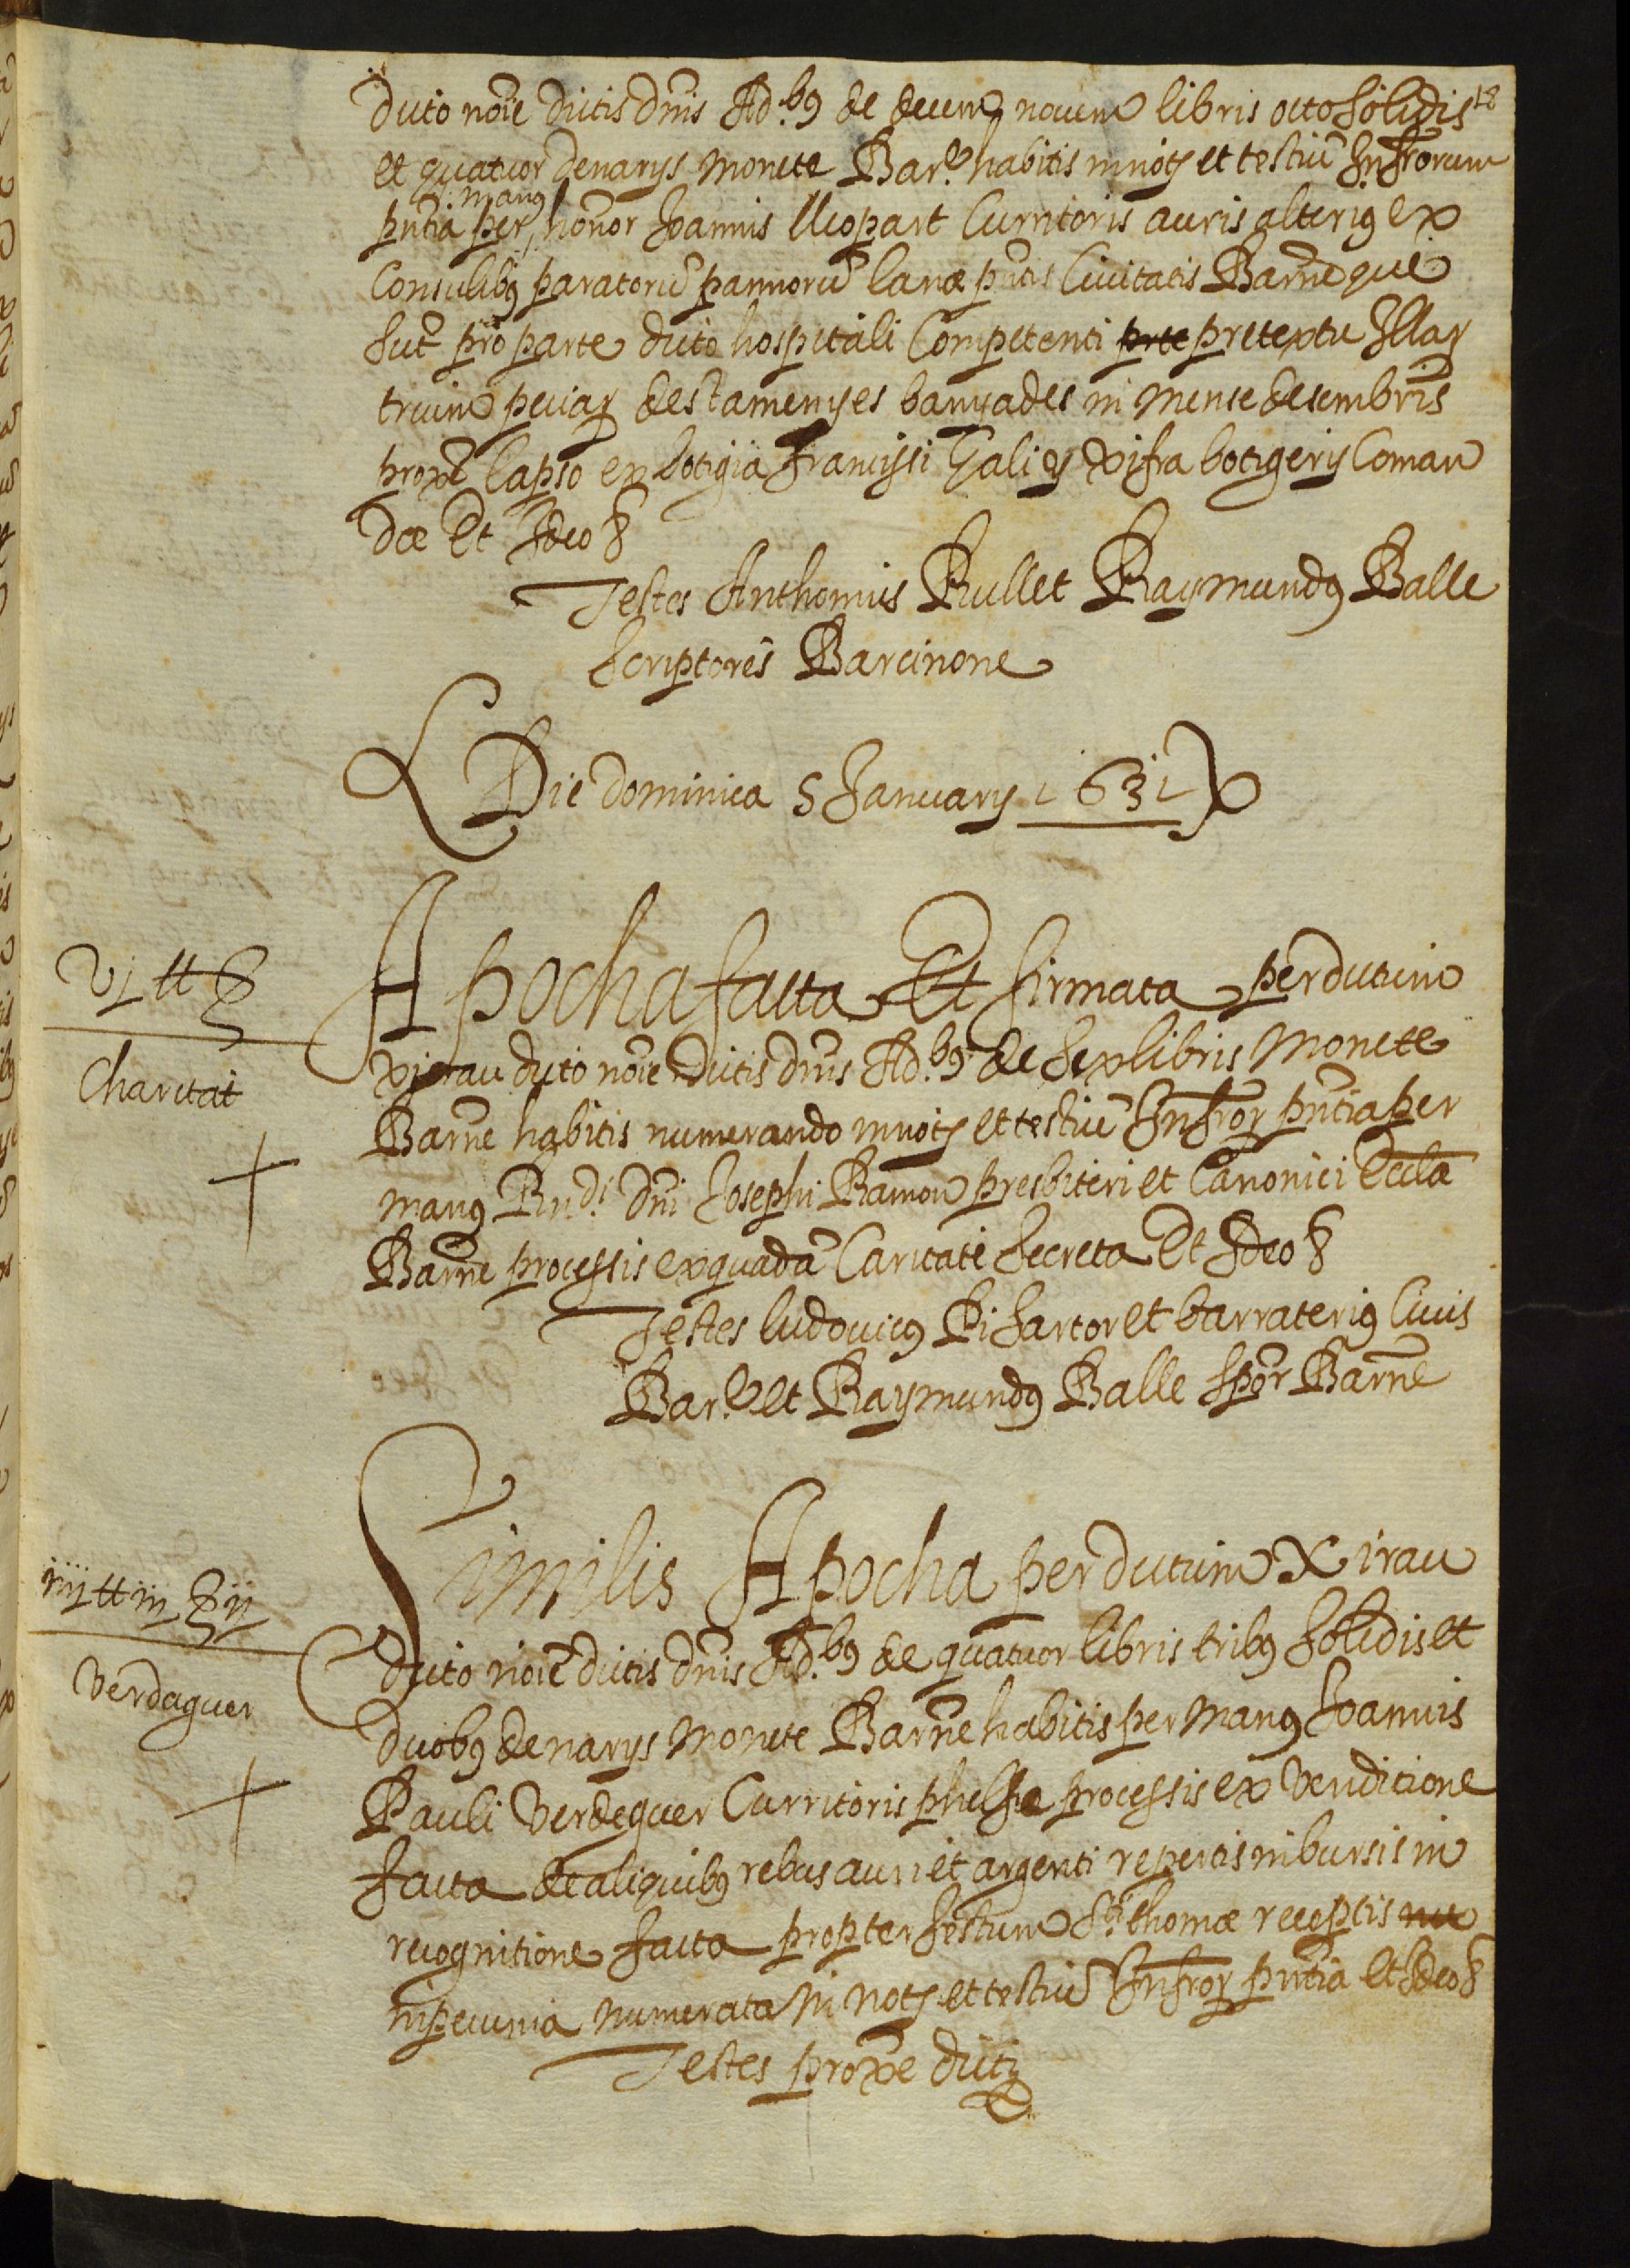 18
dicto noīe dictis dn̄is Ad.bꝯ de decem novem libris octo solidis
et quatuor denarys monete Bar.e habitis in notꝭ et testiū Infrorum
pn̄tia per manꝯ honor Joannis Llopart Curritoris auris alterig ex
Consulibꝯ paratorū pannorū lanæ pn̄tis Civitatis Barn̄e que
sūt pro parte dicto hospitali Competenti prte pretextu Illaꝝ
trium peciaꝝ de stamenyes banyades in mense desembris
proxē lapso ex botigia Francissi Gali y xifra botigerij Coman
dæ Et Ideo &
Testes Anthonius Rullet Raymundꝯ Balle
scriptores Barcinone
Die dominica 5 January 1631
vj ll s
Charitat
Apocha facta Et firmata per dictum
xirau dicto noīe dictis dn̄is Ad.bꝯ de sex libris Monete
Barn̄e habitis numerando in notꝭ et testiū Infroꝝ pn̄tia per
manꝯ Rn.di dn̄i Josephi Ramon presbiteri et Canonici Eccla
Barn̄e processis ex quadā Caritate secreta Et Ideo &
Testes ludovicꝯ Pi sartor et barrateriꝯ Civis
Bar.e et Raymundꝯ Balle sp̄or Barn̄e
iiij ll iij s ij
Verdaguer
Similis Apocha per dictum Xirau
dicto noīe dictis dn̄is Ad.bꝯ de quatuor libris tribꝯ solidis et
duobꝯ denarys monete Barn̄e habitis per manꝯ Joannis
Pauli Verdeguer Curritoris processis ex venditione
facta de aliquibꝯ rebus auri et argenti repertis in bursis in
recognitione facta propter festum Sti thomæ receptis
in pecunia numerata in notꝭ et testiū Infroꝝ pn̄tia et Ideo &
Testes proxe dicti